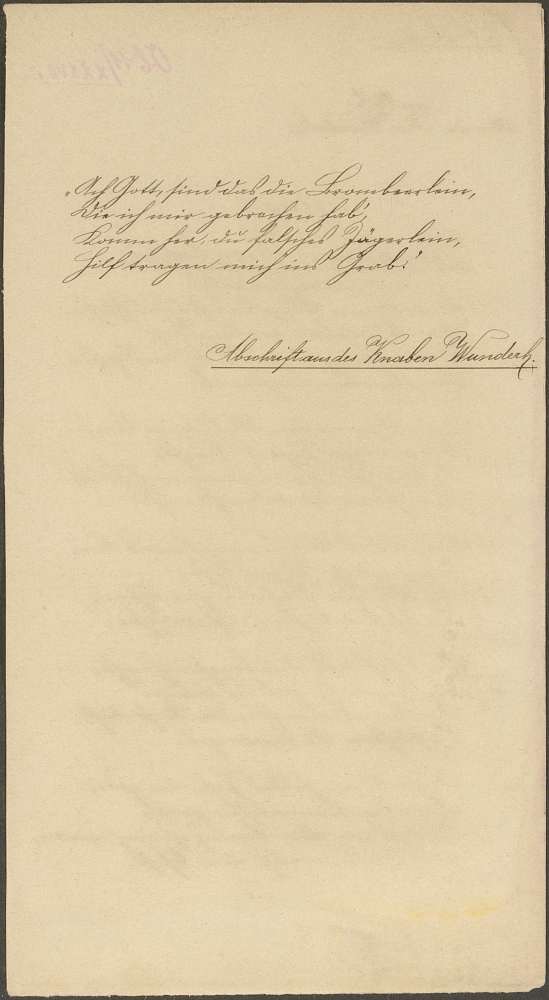 „Ach Gott, sind das die Brombeerlein,
Die ich mir gebrochen hab',
Komm her, du falsches Jägerlein,
Hilf tragen mich ins Grab!"
Abschrift aus des Knaben Wunderh.